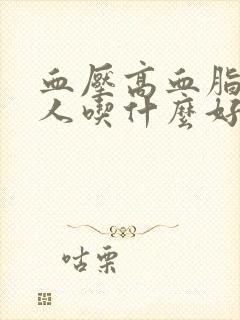 血壓高血脂
人喫什麼好
咕栗